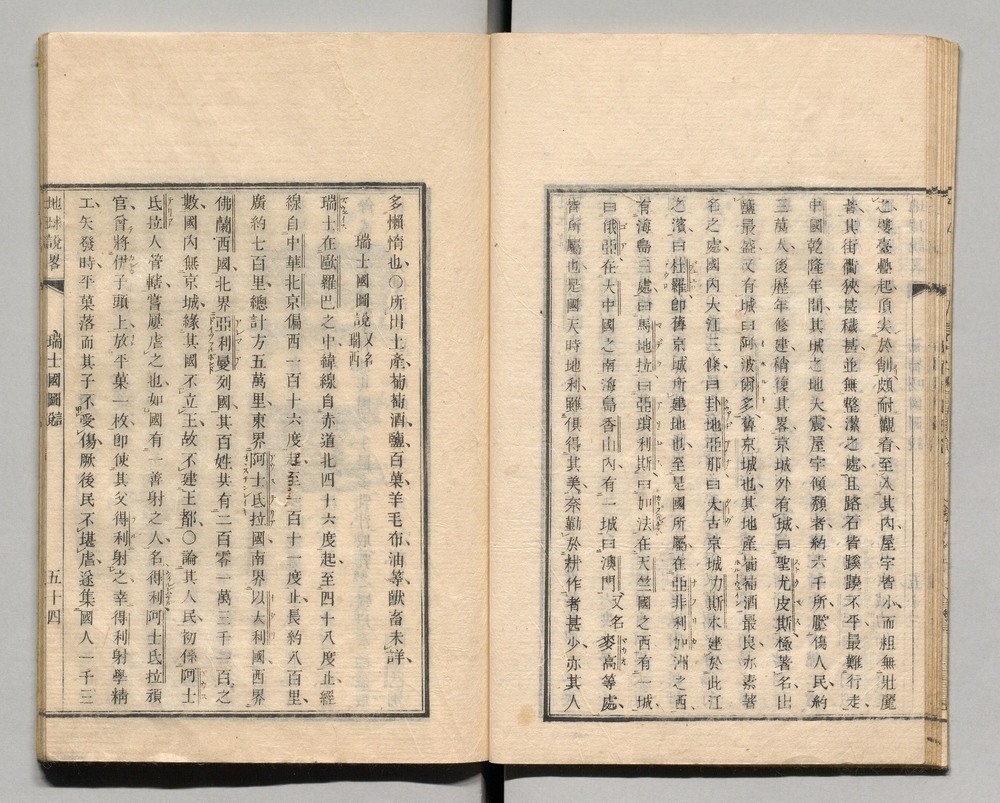 樓臺疊起頂尖於削頗耐觀看至入其內屋宇皆小而粗無壯麗
者其街衢狹甚穢甚並無整潔之處且路石皆蹊蹺不平最難行走
中國乾隆年間其城之地大震屋宇傾頽者約六千所壓傷人民約
三萬人後歷年修建稍復其畧京城外有城曰聖尤皮斯極著名出
鹽最盛又有城曰阿波爾多舊京城也其地產葡萄酒最良亦素著
名之處國內大江三條曰卦地亞那曰大古京城力斯本建於此江
之濱曰杜羅卽舊京城所建地也至是國所屬在亞非利加洲之西
有海島三處曰馬地拉曰亞瑣利斯曰加法在天竺國之西有一城
曰俄亞在大中國之南海島香山內有一城曰澳門又名麥高等處
皆所屬也是國天時地利雖俱得其美奈勤於耕作者甚少亦其人
多懶惰也〇所出土產葡萄酒鹽百菓羊毛布油等獸畜未詳
瑞士國圖說又名瑞西
瑞士在歐羅巴之中緯線自赤道北四十六度起至四十八度止經
線自中華北京偏西一百十六度起至一百十一度止長約八百里
廣約七百里總計方五萬里東界阿士氐拉國南界以大利國西界
佛蘭西國北界亞利曼列國其百姓共有二百零一萬三千一百之
數國內無京城緣其國不立王故不建王都〇論其人民初係阿士
氐拉人管轄嘗屢虐之也如國有一善射之人名得利阿士氐拉䫋
官曾將伊子頭上放平菓一枚卽使其父得利射之幸得利射學精
工矢發時平菓落而其子不受傷厥後民不堪虐遂集國人一千三
地球說畧
瑞士國圖說
五十四